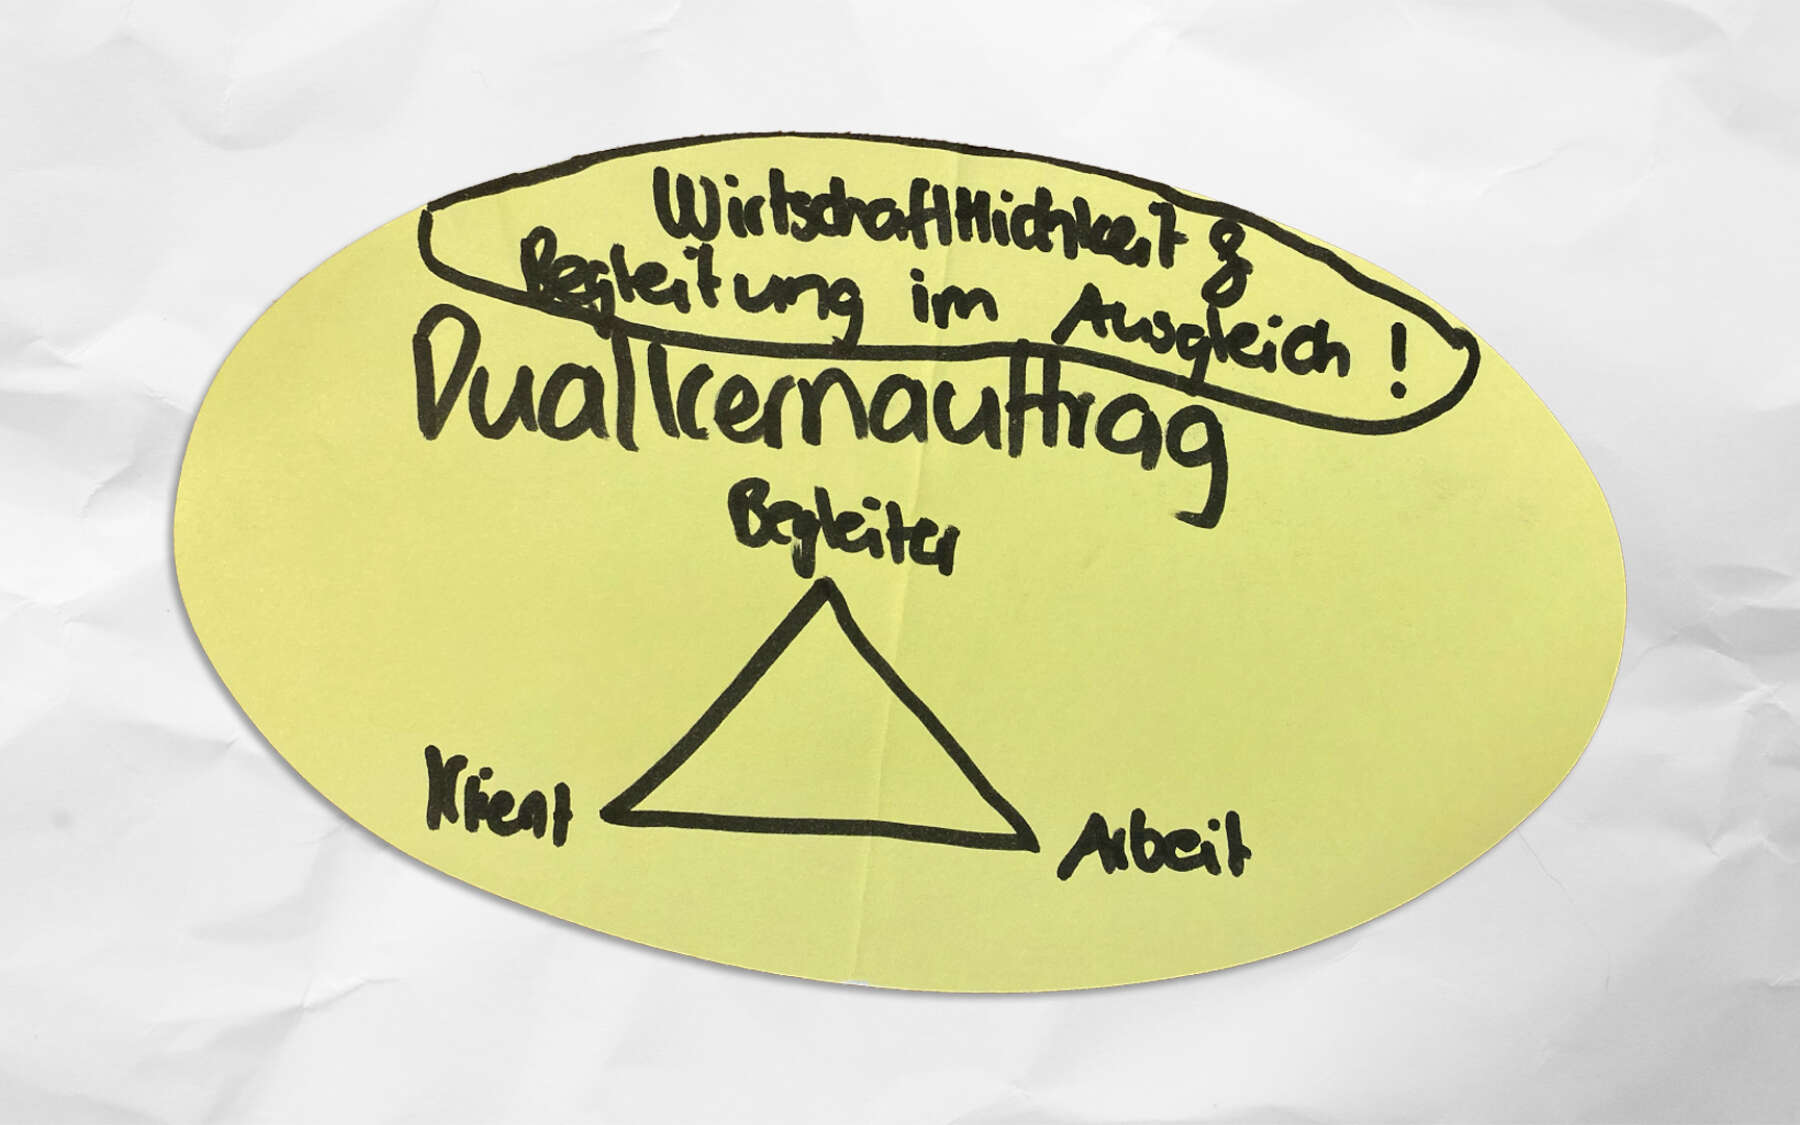 Wirtschaftlichkeit &
Begleitung im Ausgleich !
Dualkernauftrag
Begleiter
Klient
Arbeit